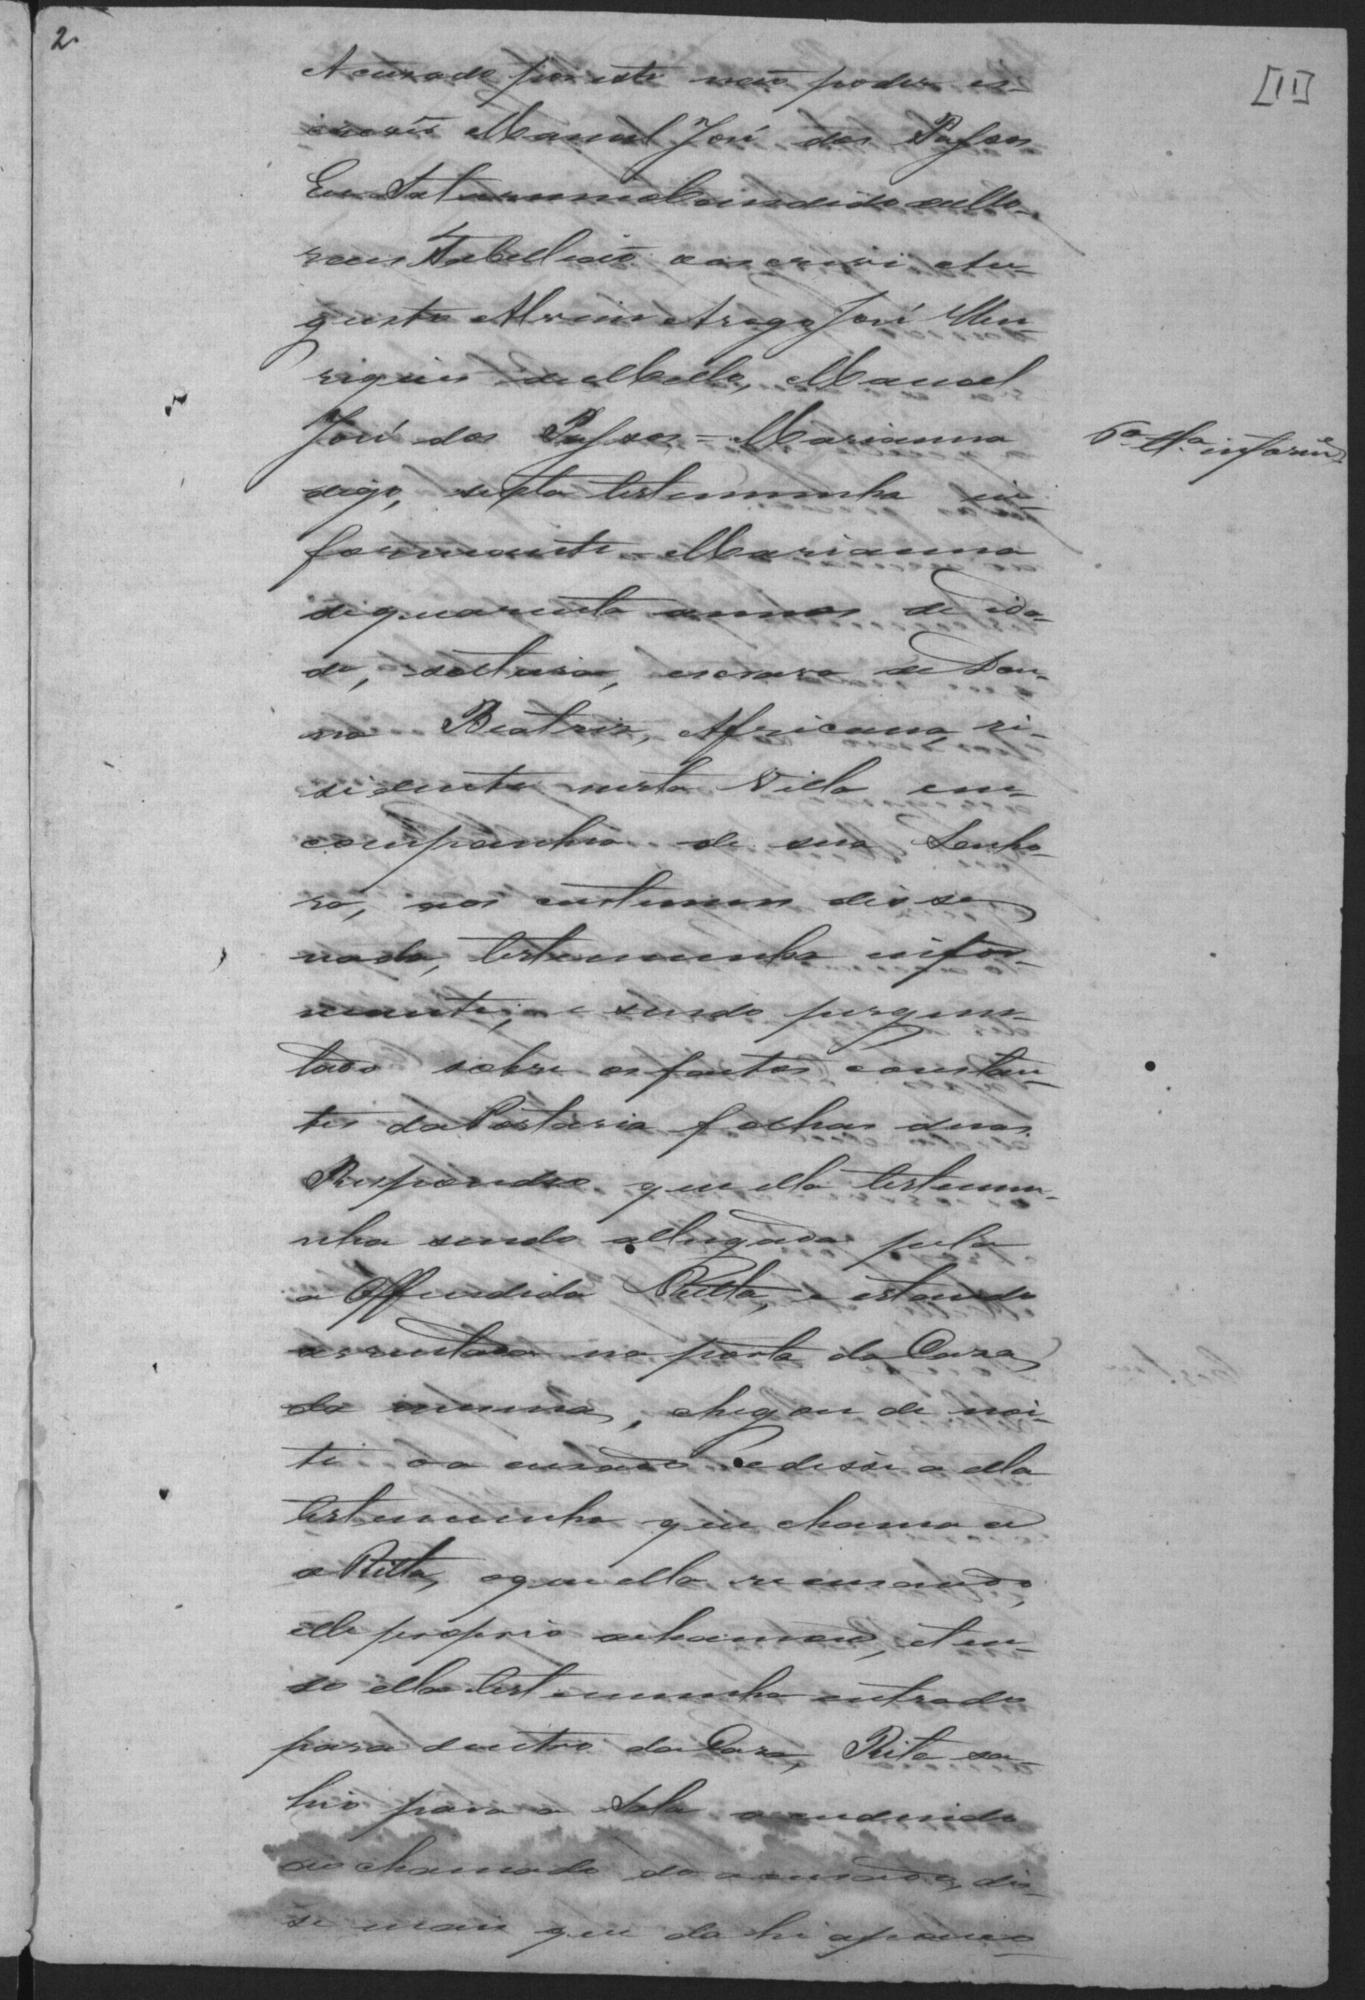 2.
[11]
Accusado por este não poder es-
crever Manoel José dos Passos
Eu Saturnino Candido
Tabellião o escrevi Au-
gusto Alvim Arago José Hen-
riques de Mello, Manoel
José dos Passos = Marianna
6ª Tª inform.e
digo, sexta testemunha in-
formante = Marianna
de quarenta annos de ida-
de, solteira, escrava de Don-
na Beatris, Africana, re-
sidente nesta Villa em
companhia de sua Senho-
ra, aos custumes disse
nada, testemunha infor-
mante, e sendo pergun-
tado sobre os factos constan-
tes da Portaria folhas duas
Respondeo que ella testemu-
nha sendo allugada pela
a Offendida Ritta, e estando
assentada na porta da Casa
da mesma, chegou de noi-
te o accusado e disse a ella
testemunha que chamace
a Ritta, o que ella recusando,
elle proprio a chamou, e ten-
do ella testemunha entrado
para dentro da Casa, Rita sa-
hio para a Sala acudindo
ao chamado do accusado, dis-
se mais que da hi a pouco